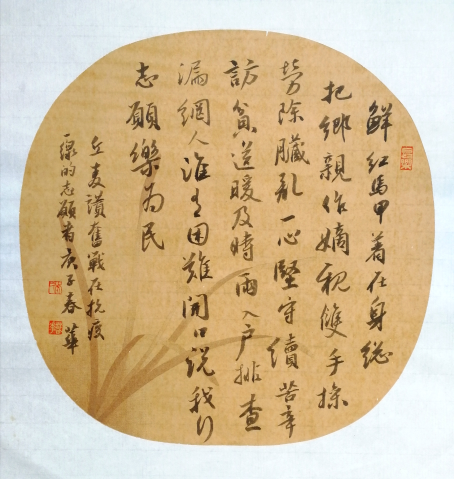 鮮紅馬甲着在身總
把鄉親作嫡親雙手操
勞除臟亂一心堅守續苦辛
訪貧送暖及時雨入户排查
漏網人誰有困難開口說我們
志願樂為民
丘麦讚奮戰在抗疫
一線的志願者庚子春華